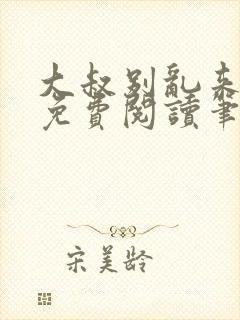 大叔别亂来
免費閱讀筆
宋美龄